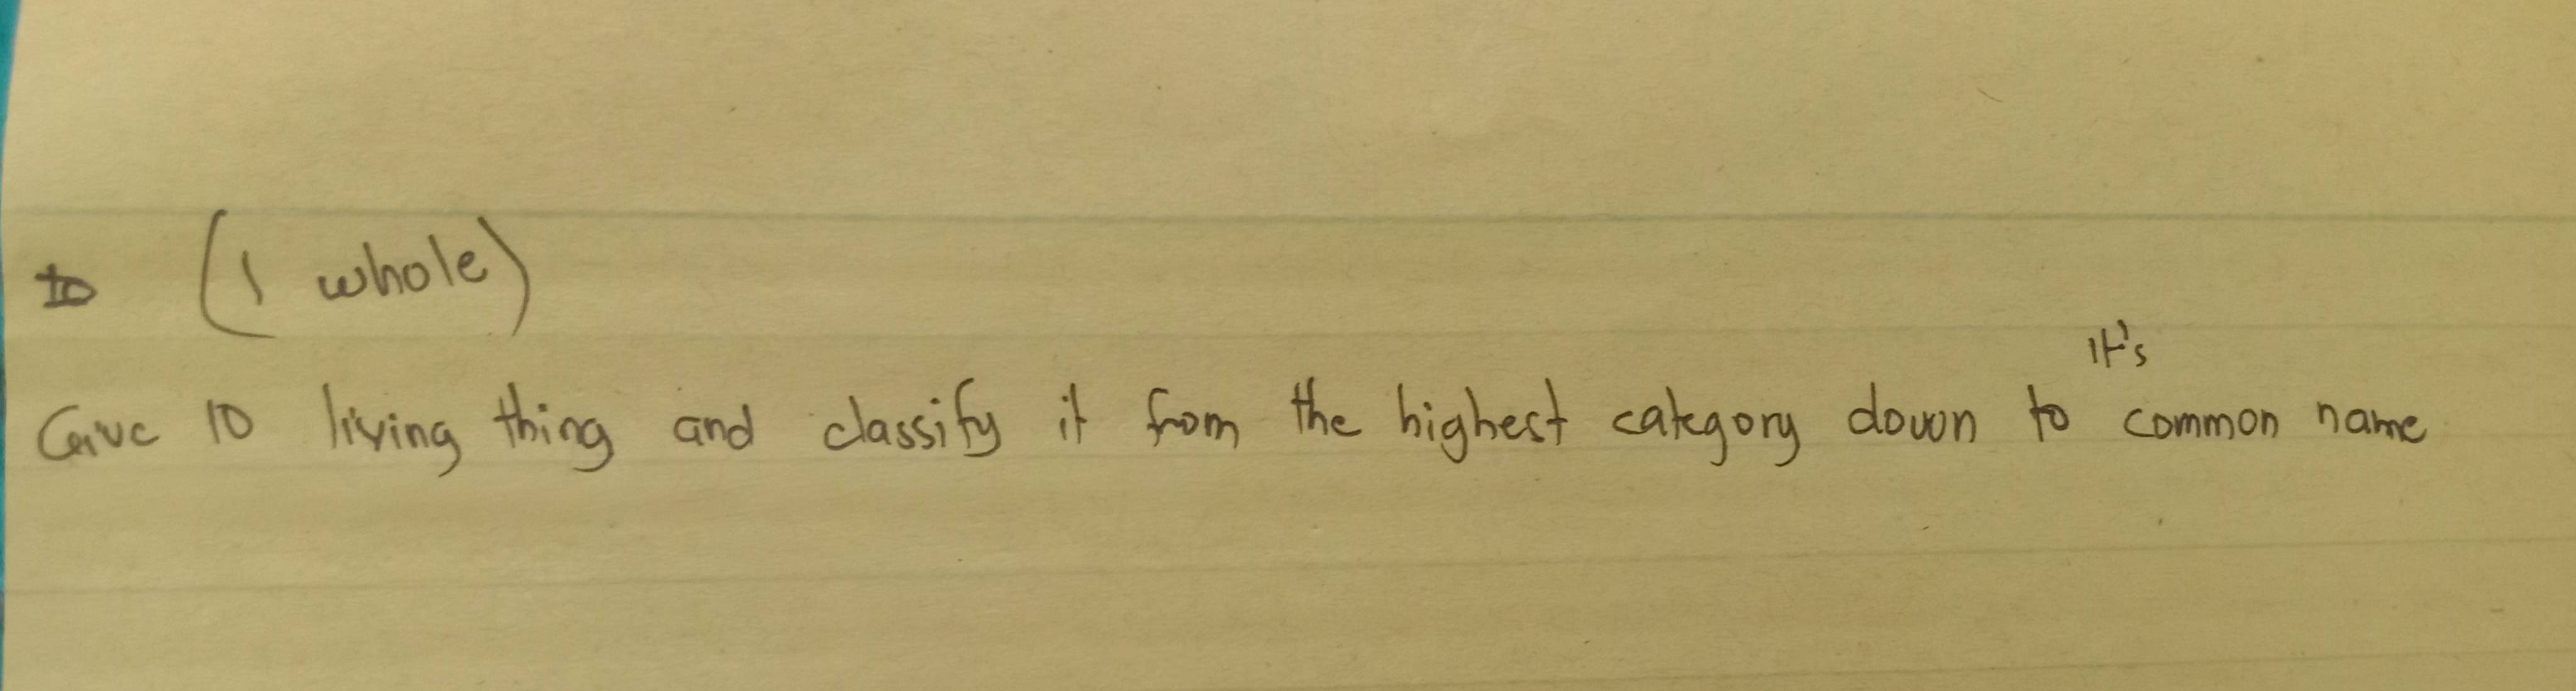 (1 whole)
it's
Give 10 living thing and classify it from the highest category down to common name